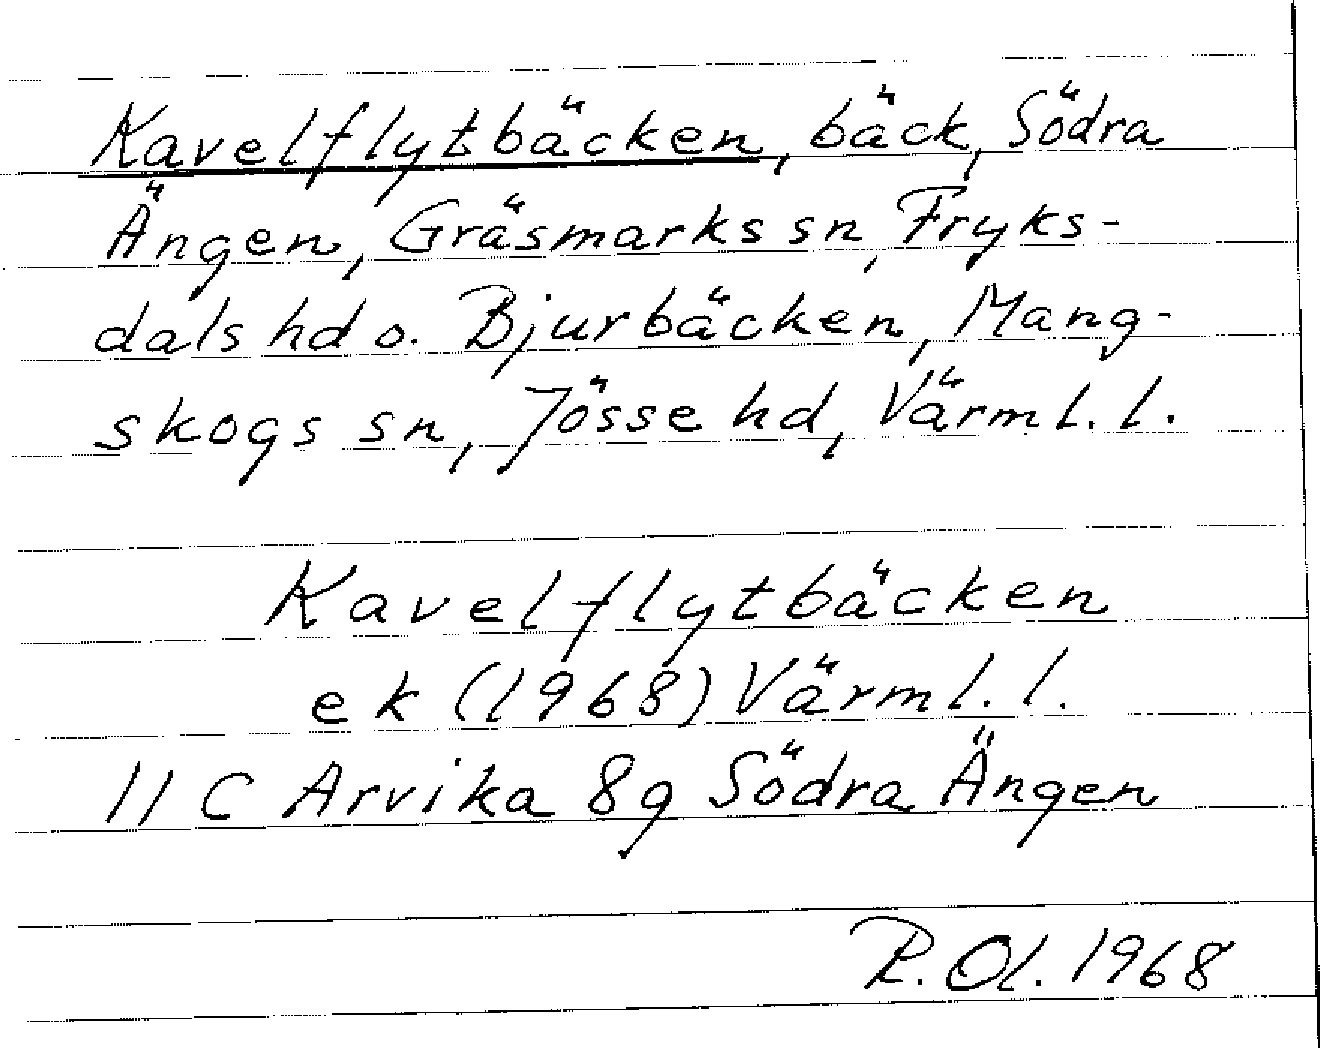 Kavelflytbäcken, bäck, Södra
Ängen, Gräsmarks sn, Fryks-
dals hd o. Bjurbäcken, Mang-
skogs sn, Jösse hd, Värml. l.
Kavelflytbäcken
ek (1968) Värml. l.
11 C Arvika 8g Södra Ängen
R. Ol. 1968